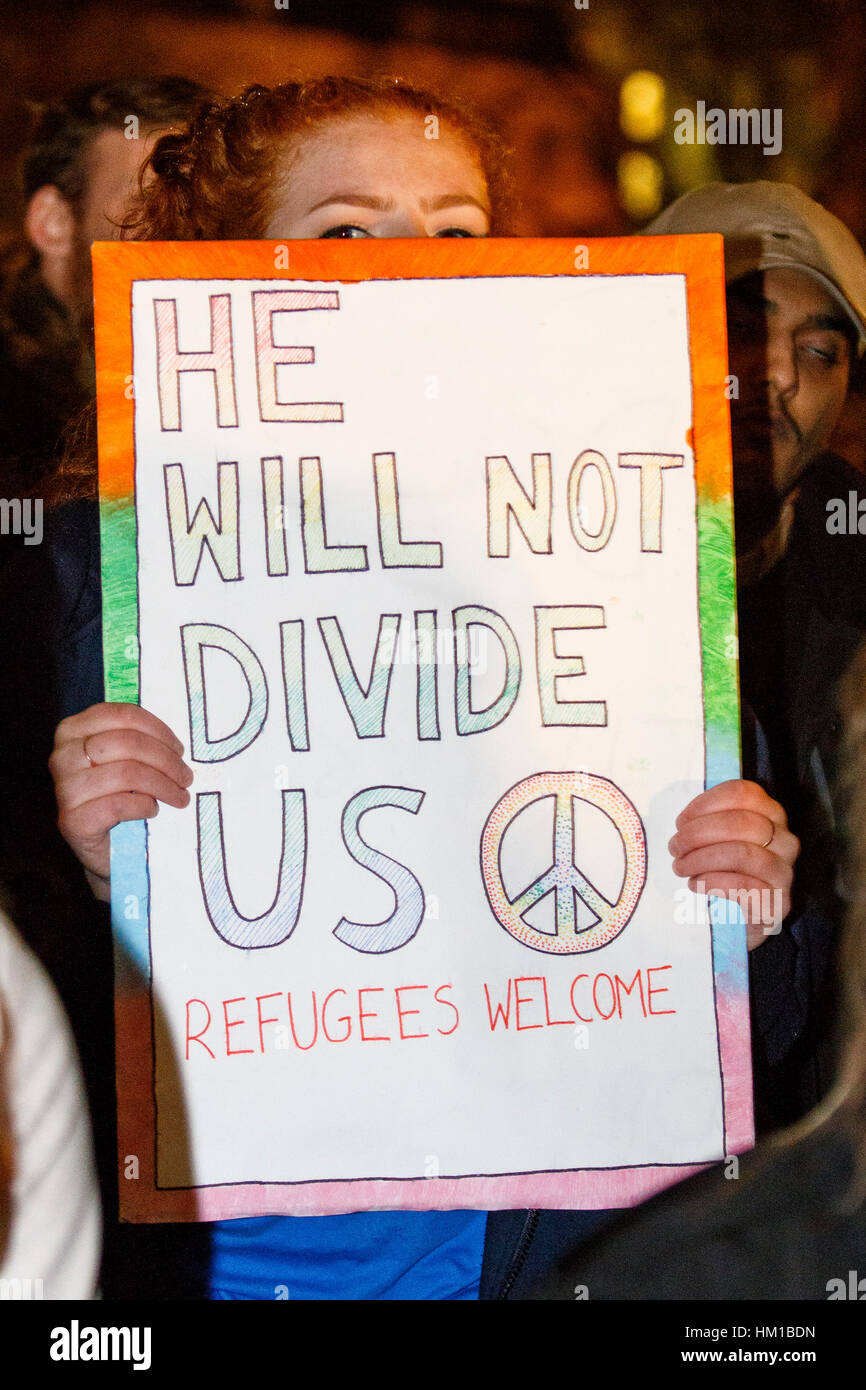 HE
WILL NOT
DIVIDE
US
REFUGEES WELCOME
alamy
Image ID: HM1BDN
www.alamy.com